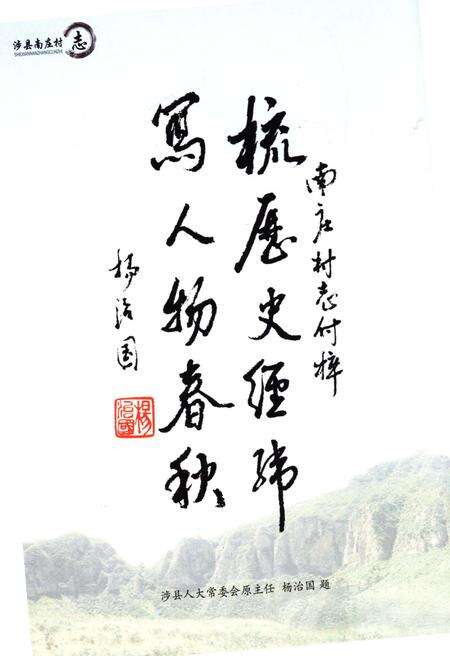 涉县南庄村
志
SHEXIANNANZHUANGCUNZHI
南庄村志付梓
梳歷史經緯
寫人物春秋
杨治国
楊治國
涉县人大常委会原主任 杨治国 题